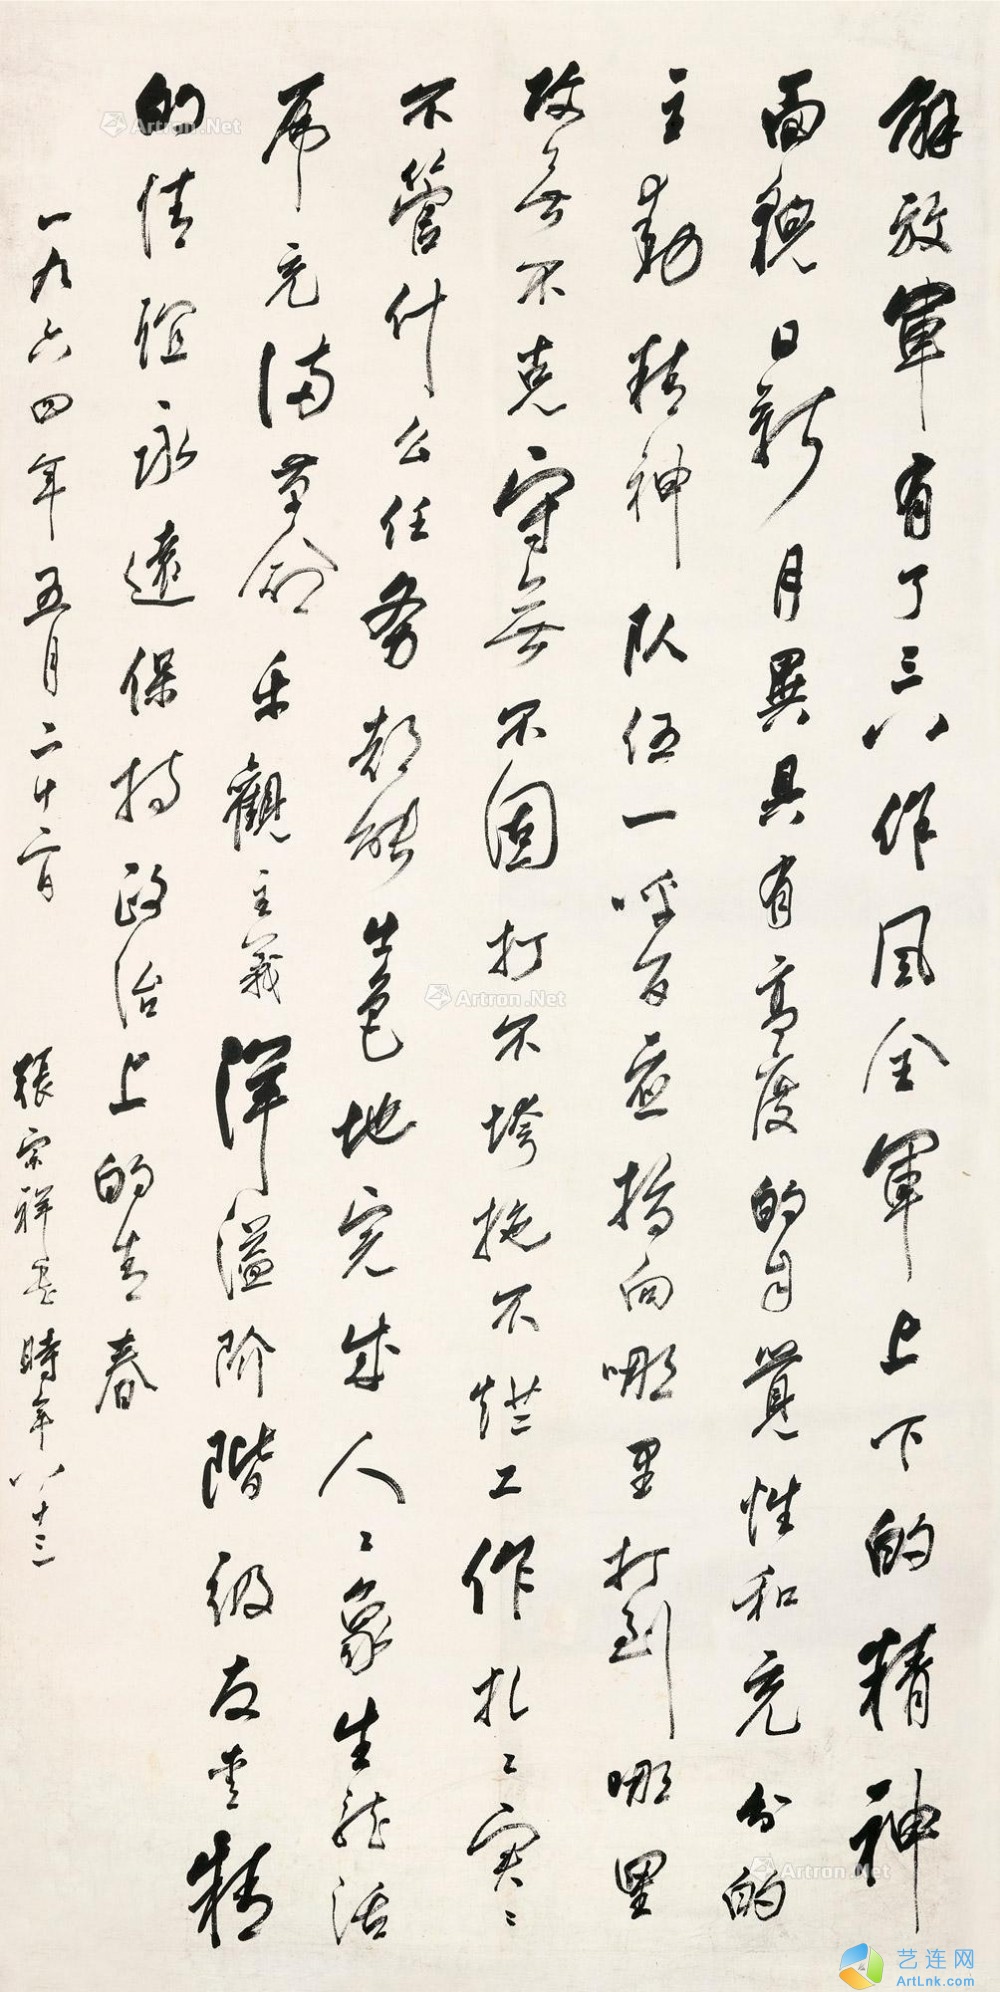 解放軍有了三八作风全軍上下的精神
面貌日新月異具有高度的自覺性和充分的
主動精神队伍一呼百应指向哪里打到哪里
攻無不克守無不固打不垮拖不烂工作扎々实々
不管什么任务都能出色地完成人々象生龙活
虎充满革命乐觀主義洋溢阶階级友爱精
的情谊永遠保持政治上的青春
一九六四年五月二十二日 張宗祥書時年八十三
Artron.Net
Artron.Net
Artron.Net
艺连网
ArtLnk.com